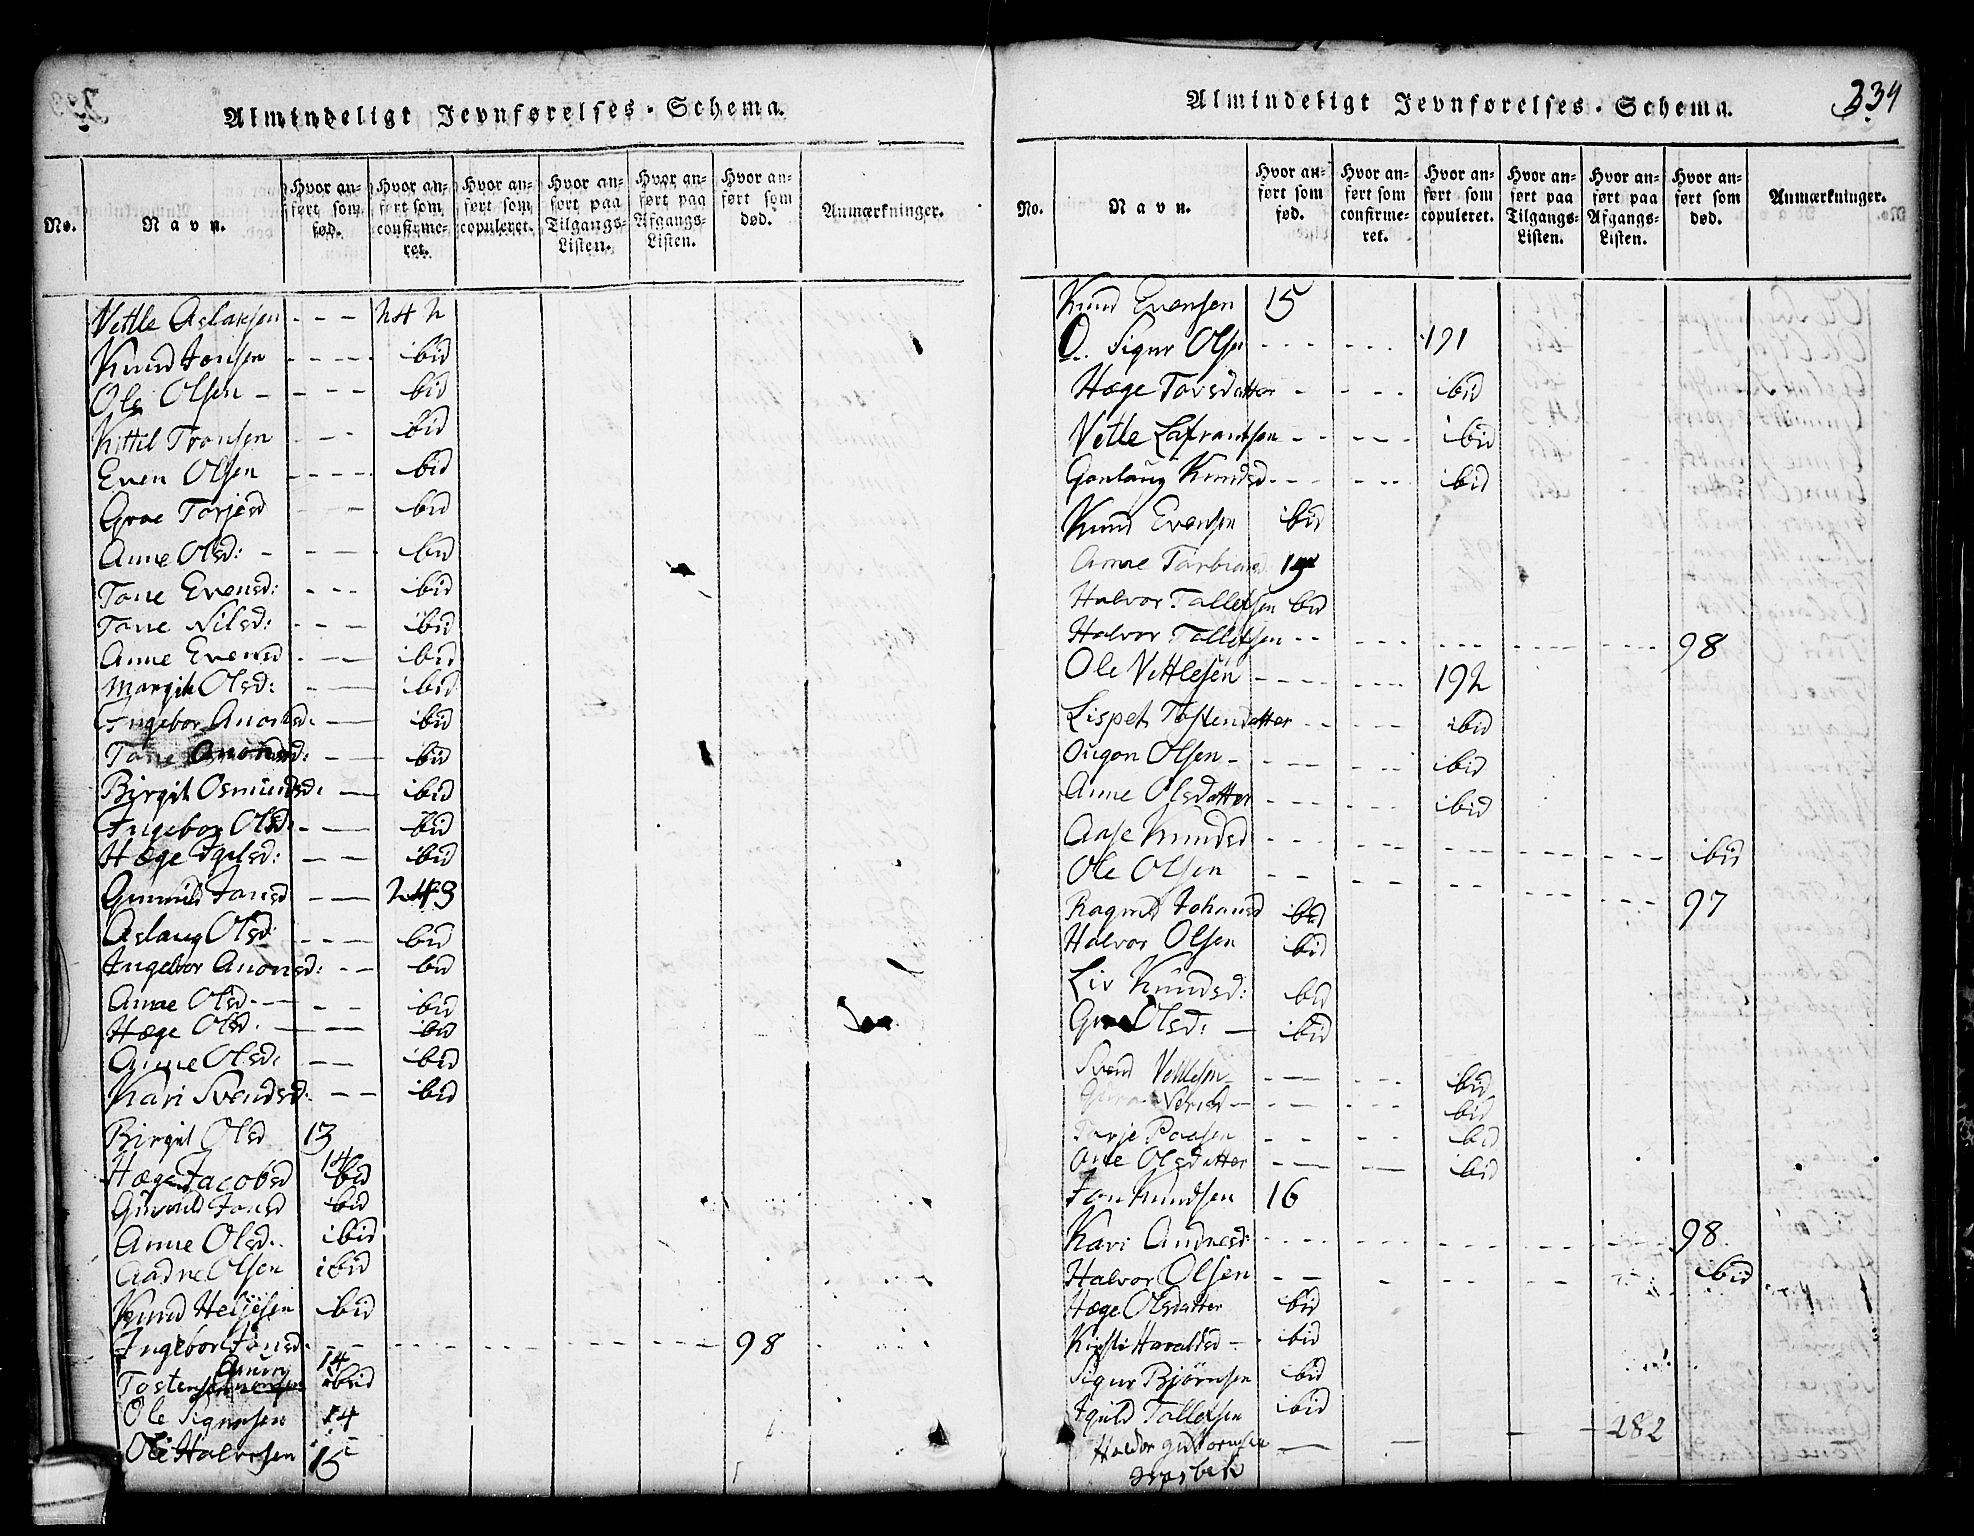 Almindeligt Jevnførelses-Schema.
No. Navn. Hvor anført som fød. Hvor anført som confirmeret. Hvor anført som copuleret. Hvor anført paa Tilgangs-Listen. Hvor anført paa Afgangs-Listen. Hvor anført som død. Anmærkninger.
Vettle Aslaksen - - - 242
Knud Jonsen - - - - ibid
Ole Olsen - - - - ibid
Kittil Tronsen - - - ibid
Even Olsen - - - - ibid
Groe Torjesd - - - ibid
Anne Olsd: - - - - ibid
Tone Evensd: - - - ibid
Tone Nilsd: - - - ibid
Anne Evensd - - - ibid
Margit Olsd: - - - ibid
Ingebor Anonsd. - - ibid
Tone Anonsd: - - ibid
Birgit Osmundsd. - - ibid
Ingebor Olsd: - - ibid
Hæge Igelsd: - - ibid
Gunnild Jonsd - - 243
Aslaug Olsd: - - - ibid
Ingebor Anonsd: - - ibid
Anne Olsd - - - - ibid
Hæge Olsd. - - ibid
Anne Olsd: - - ibid
Kari Svendsd. - - ibid
Birgit Olsd 13
Hæge Jacobsd 14 ibid
Gunnild Jonsd ibid
Anne Olsd. ibid
Aadne Olsen ibid
Knud Heljesen ibid
Ingebor Jonsd. - - - - - 98
Tosten 14 ibid
Ole Signursen 14
Ole Halvorsen 15
Almindeligt Jevnførelses-Schema. 334
No. Navn. Hvor anført som fød. Hvor anført som confirmeret. Hvor anført som copuleret. Hvor anført paa Tilgangs-Listen. Hvor anført paa Afgangs-Listen. Hvor anført som død. Anmærkninger.
Knud Evensen 15
O.. Sigur Olsen - - - - - - 191
Hæge Torsdatter - - - - ibid
Vetle Lafrantsen - - - - - ibid
Gonlaug Knudsd - - - - - - ibid
Knud Evensen ibid
Anne Torbionsd. 15
Halvor Tallefsen ibid
Halvor Tallefsen - - - - - 98
Ole Vettlesen - - - - - - - 192
Lispet Tostendatter - - - - - ibid
Ougon Olsen - - - - - - ibid
Anne Olsdatter - - - - - - ibid
Aase Knudsd - - - - - - ibid
Ole Olsen - - - - - - 97
Ragnild Johansd ibid
Halvor Olsen ibid
Liv Knudsd: ibid
Groe Olsd: - ibid
Svend Vettlesen - - - - - ibid
ibid
Torje Paasen - - - - ibid
One Olsdatter - - - - ibid
Jon Knudsen 16
Kari Andresd - - - - - - 98.
Halvor Olsen - - - - - ibid
Hæge Olsdatter ibid
Kirsti Haraldsd - ibid
Sigur Bjørnsen ibid
Iguld Tallefsen ibid
Haldor Guttormsen - - - - 282